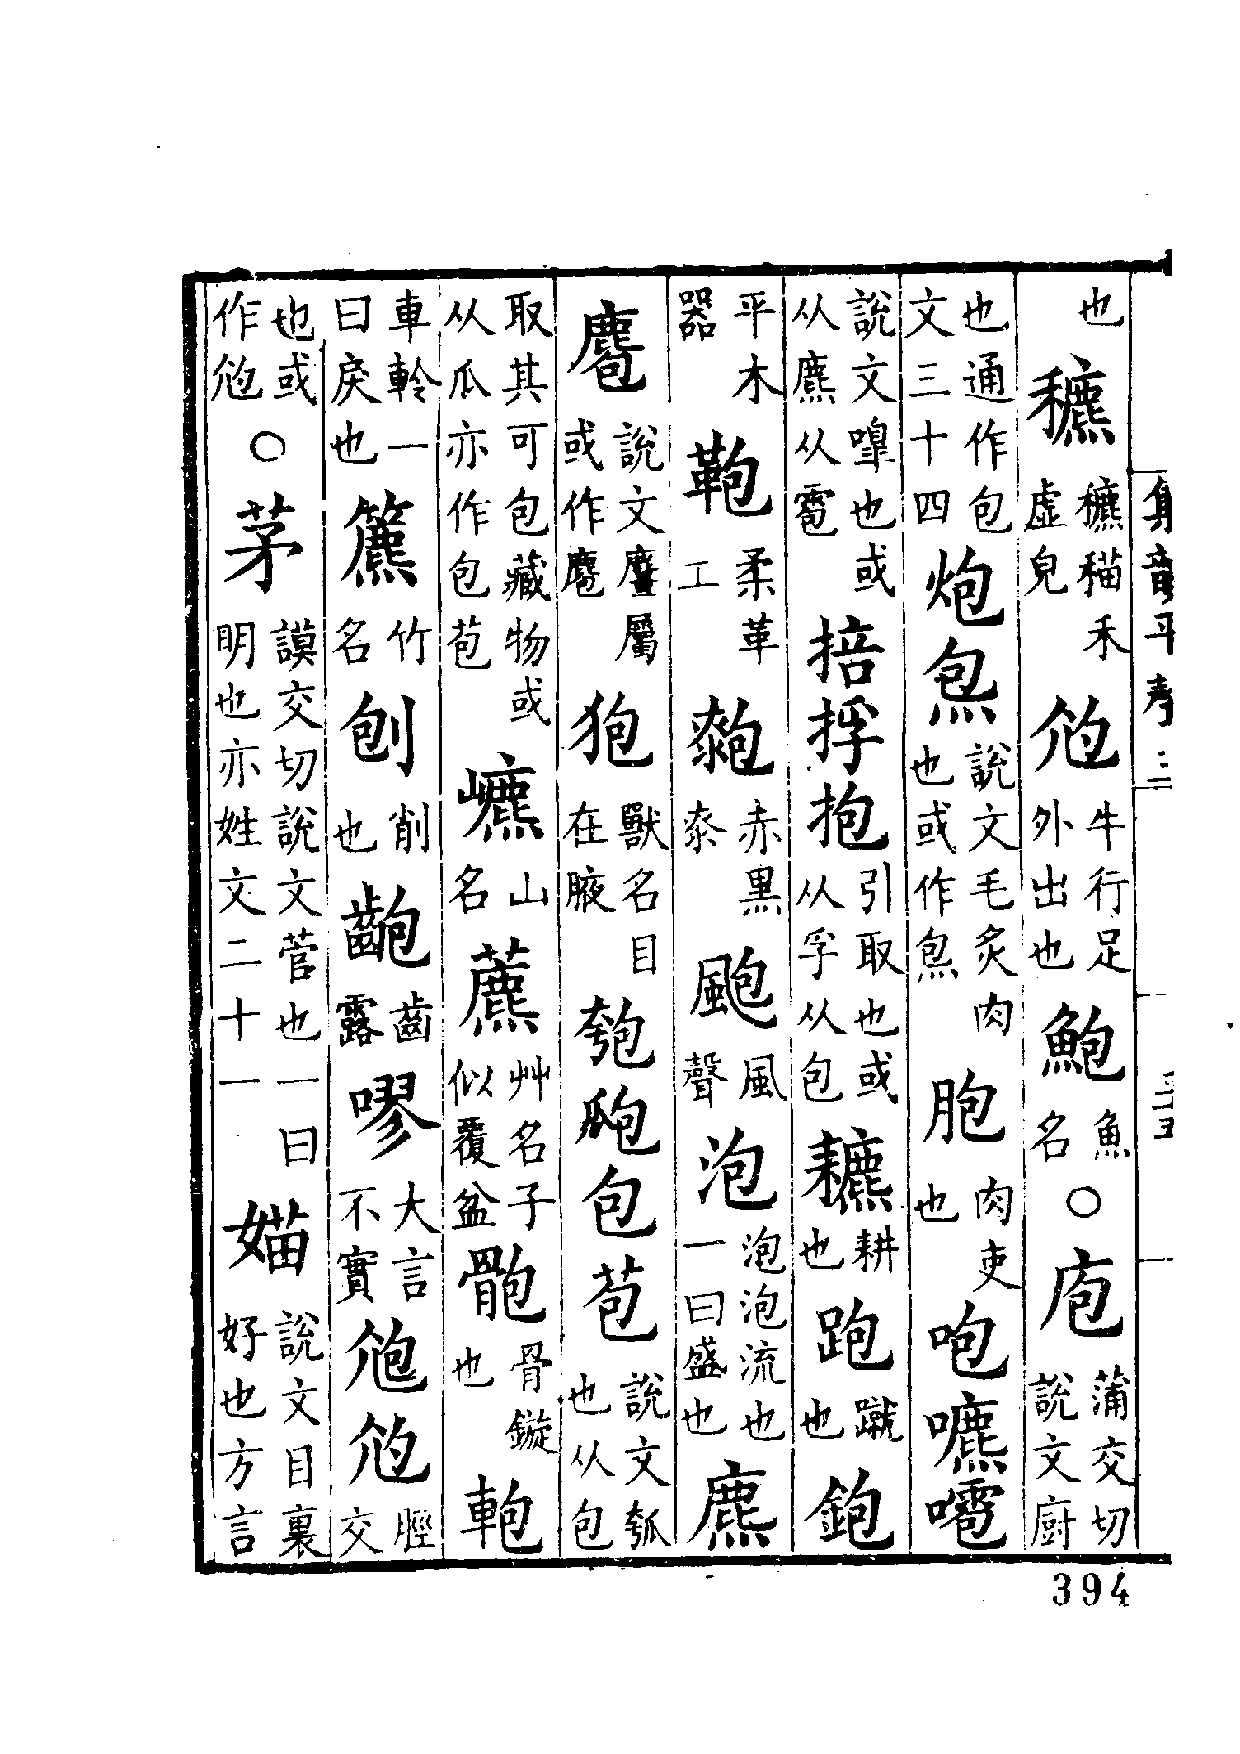 也穮穮䅦禾虛皃尥牛行足外出也鮑魚名○庖蒲交切說文廚
也通作包文三十四炮炰說文毛炙肉也或作炰胞肉吏也咆嚤嚗
說文嘷也或从麃从雹掊捊抱引取也或从孚从包穮耕也跑蹴也鉋
平木器鞄柔革工䶌赤黒桼颮風聲泡泡泡流也一曰盛也麃
麅說文麞屬或作麅狍獸名目在腋匏瓟包苞說文瓠也从包
取其可包藏物或从瓜亦作包苞嶩山名藨艸名子似覆盆骲骨鏃也軳
車軨一曰戾也簏竹名刨削也齙齒露嘐大言不實尥尥脛交
也或作尥○茅謨交切說文菅也一曰明也亦姓文二十一媌說文目裏好也方言
集韻平聲三
394